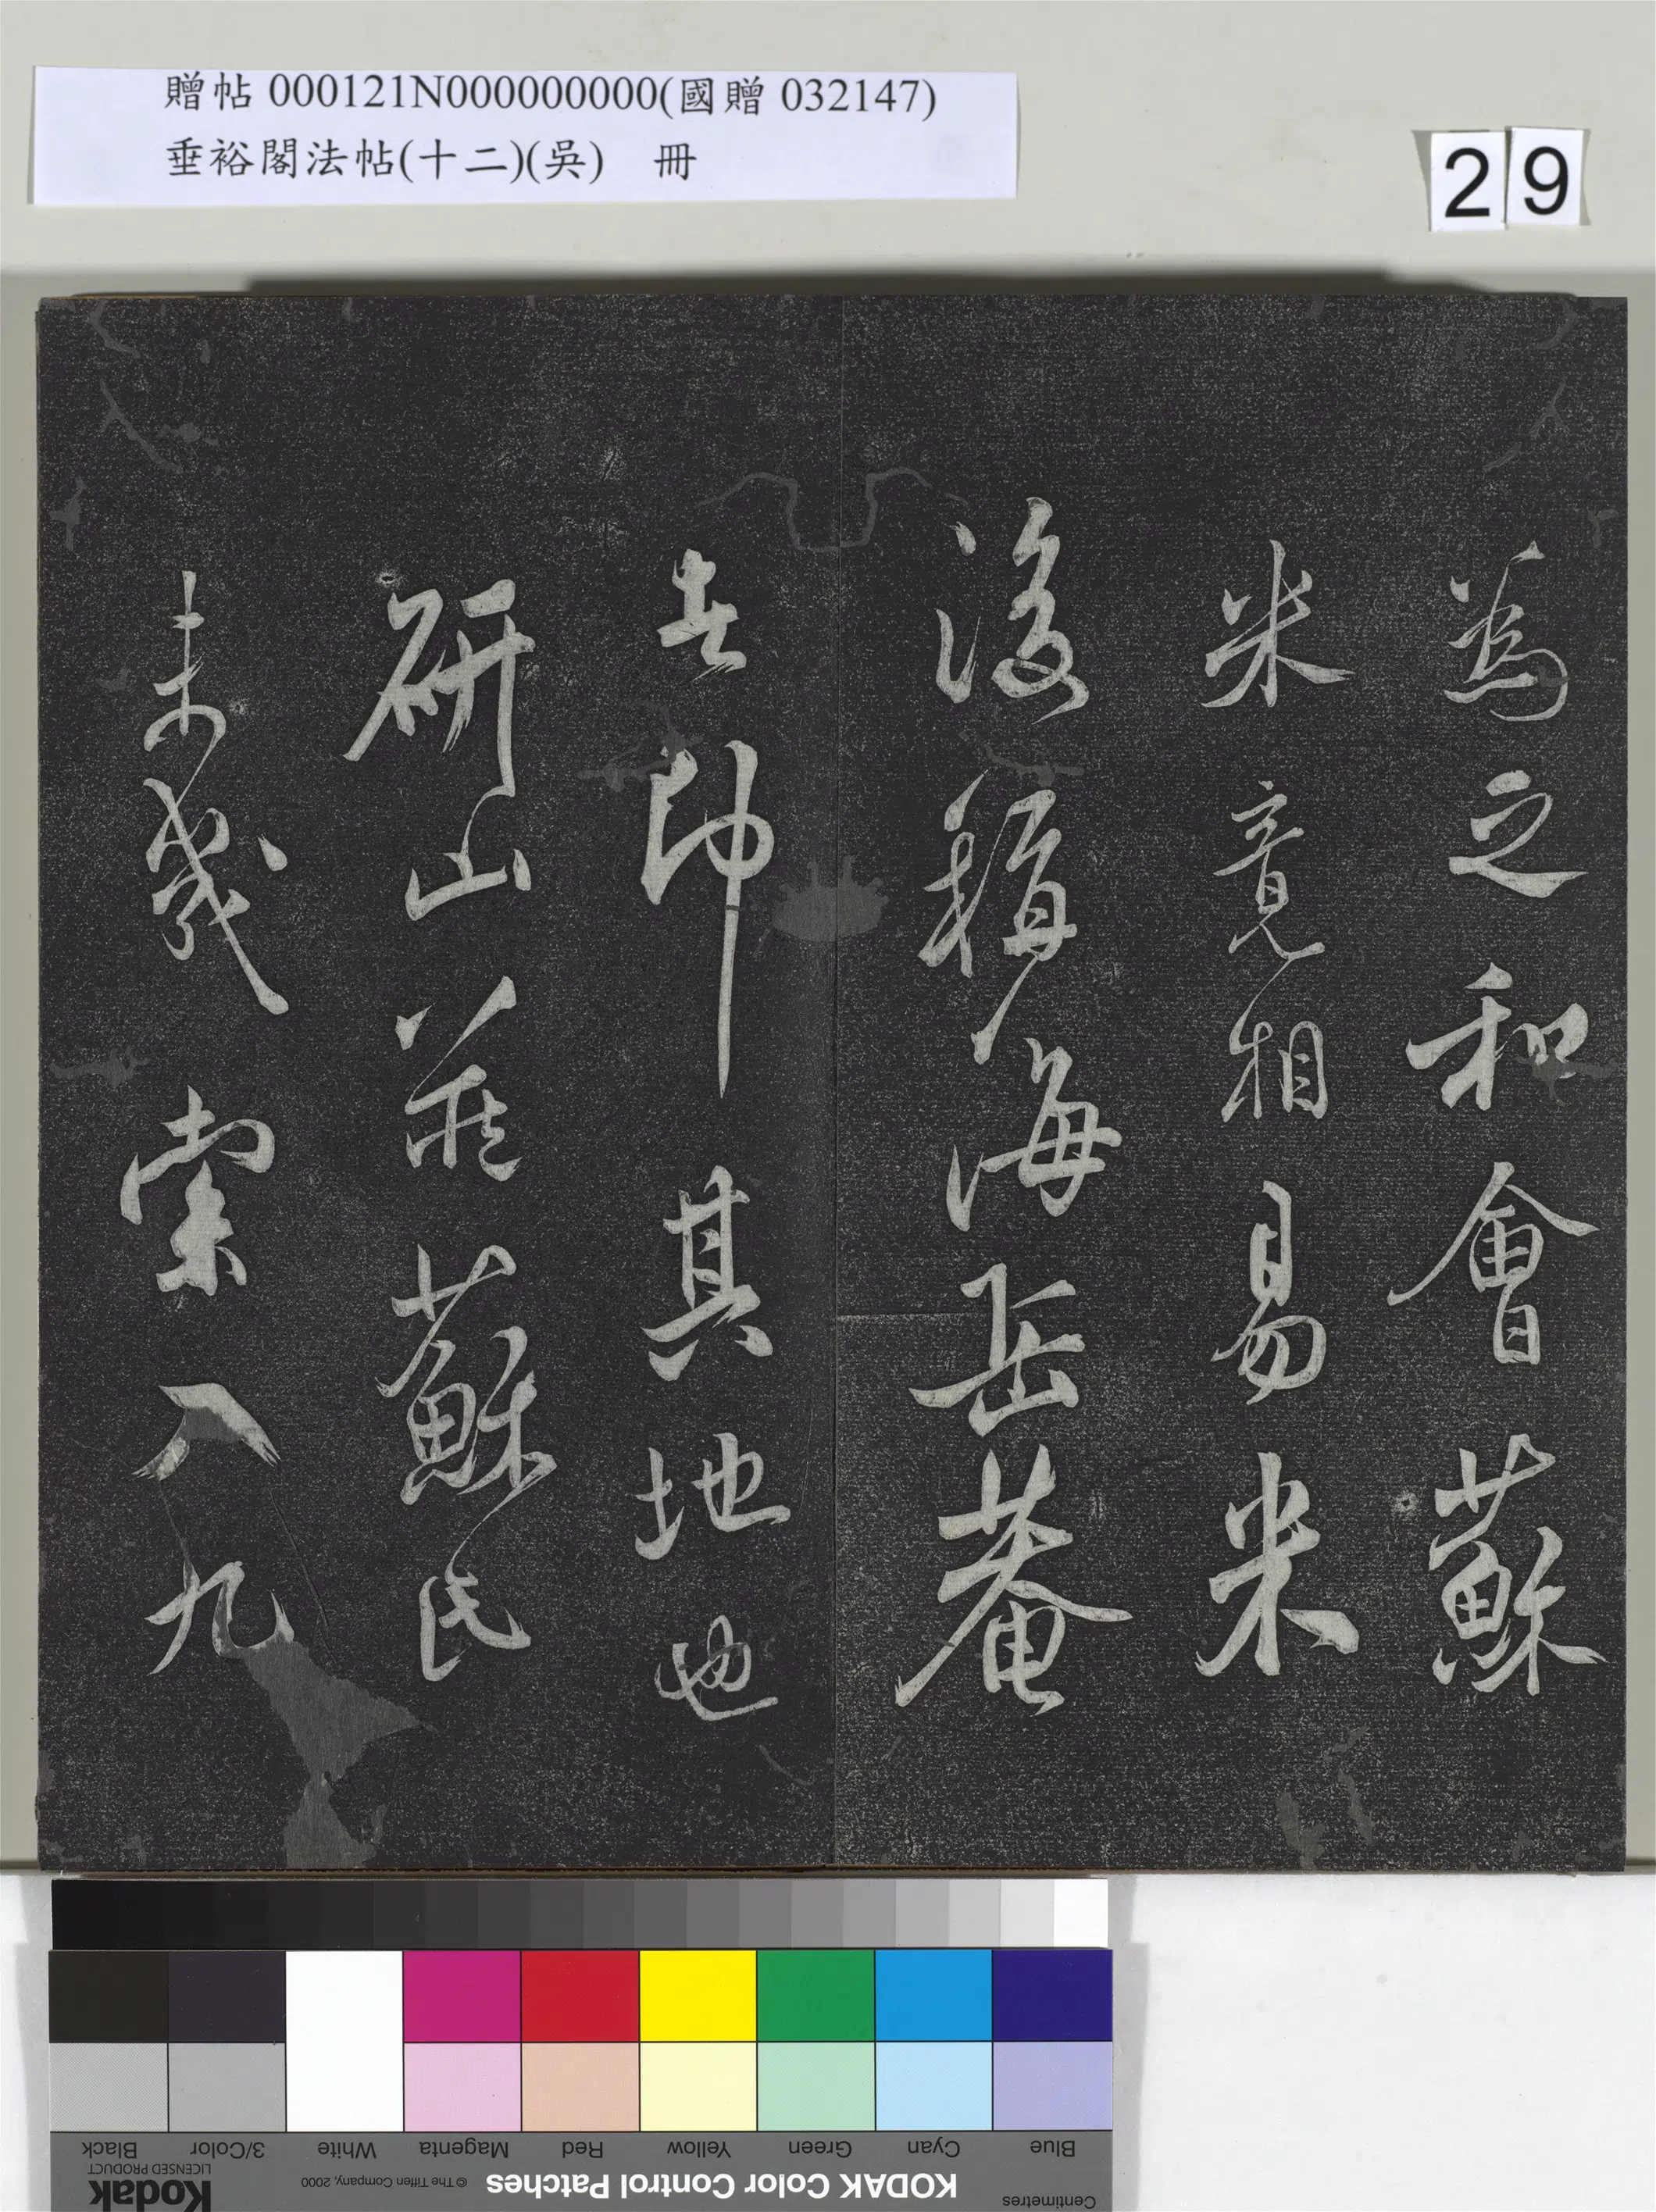 贈帖 000121N000000000(國贈 032147)
垂裕閣法帖(十二)(吳) 冊
29
為之和會蘇
米竟相易米
後號海岳菴
者卽其地也
研山藏蘇氏
未幾索入九
Black
3/Color
White
Magenta
Red
Yellow
Green
Cyan
Blue
Kodak
LICENSED PRODUCT
© The Tiffen Company, 2000
KODAK Color Control Patches
Centimetres